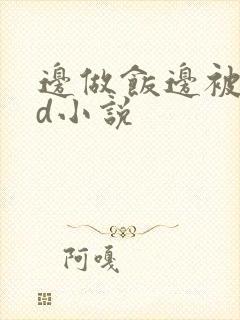 邊做飯邊被
d小説
阿嘎